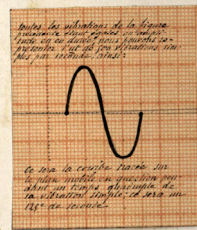 toutes les vibrations de la figure
précédente étant égales en ampli-
tude et en durée, nous pouvons re-
présenter l'ut de 500 vibrations sim-
ples par seconde, ainsi:
Ce sera la courbe tracée sur
le plan mobile en question pen-
dant un temps de
la vibration simple; ce sera un
125e de seconde.